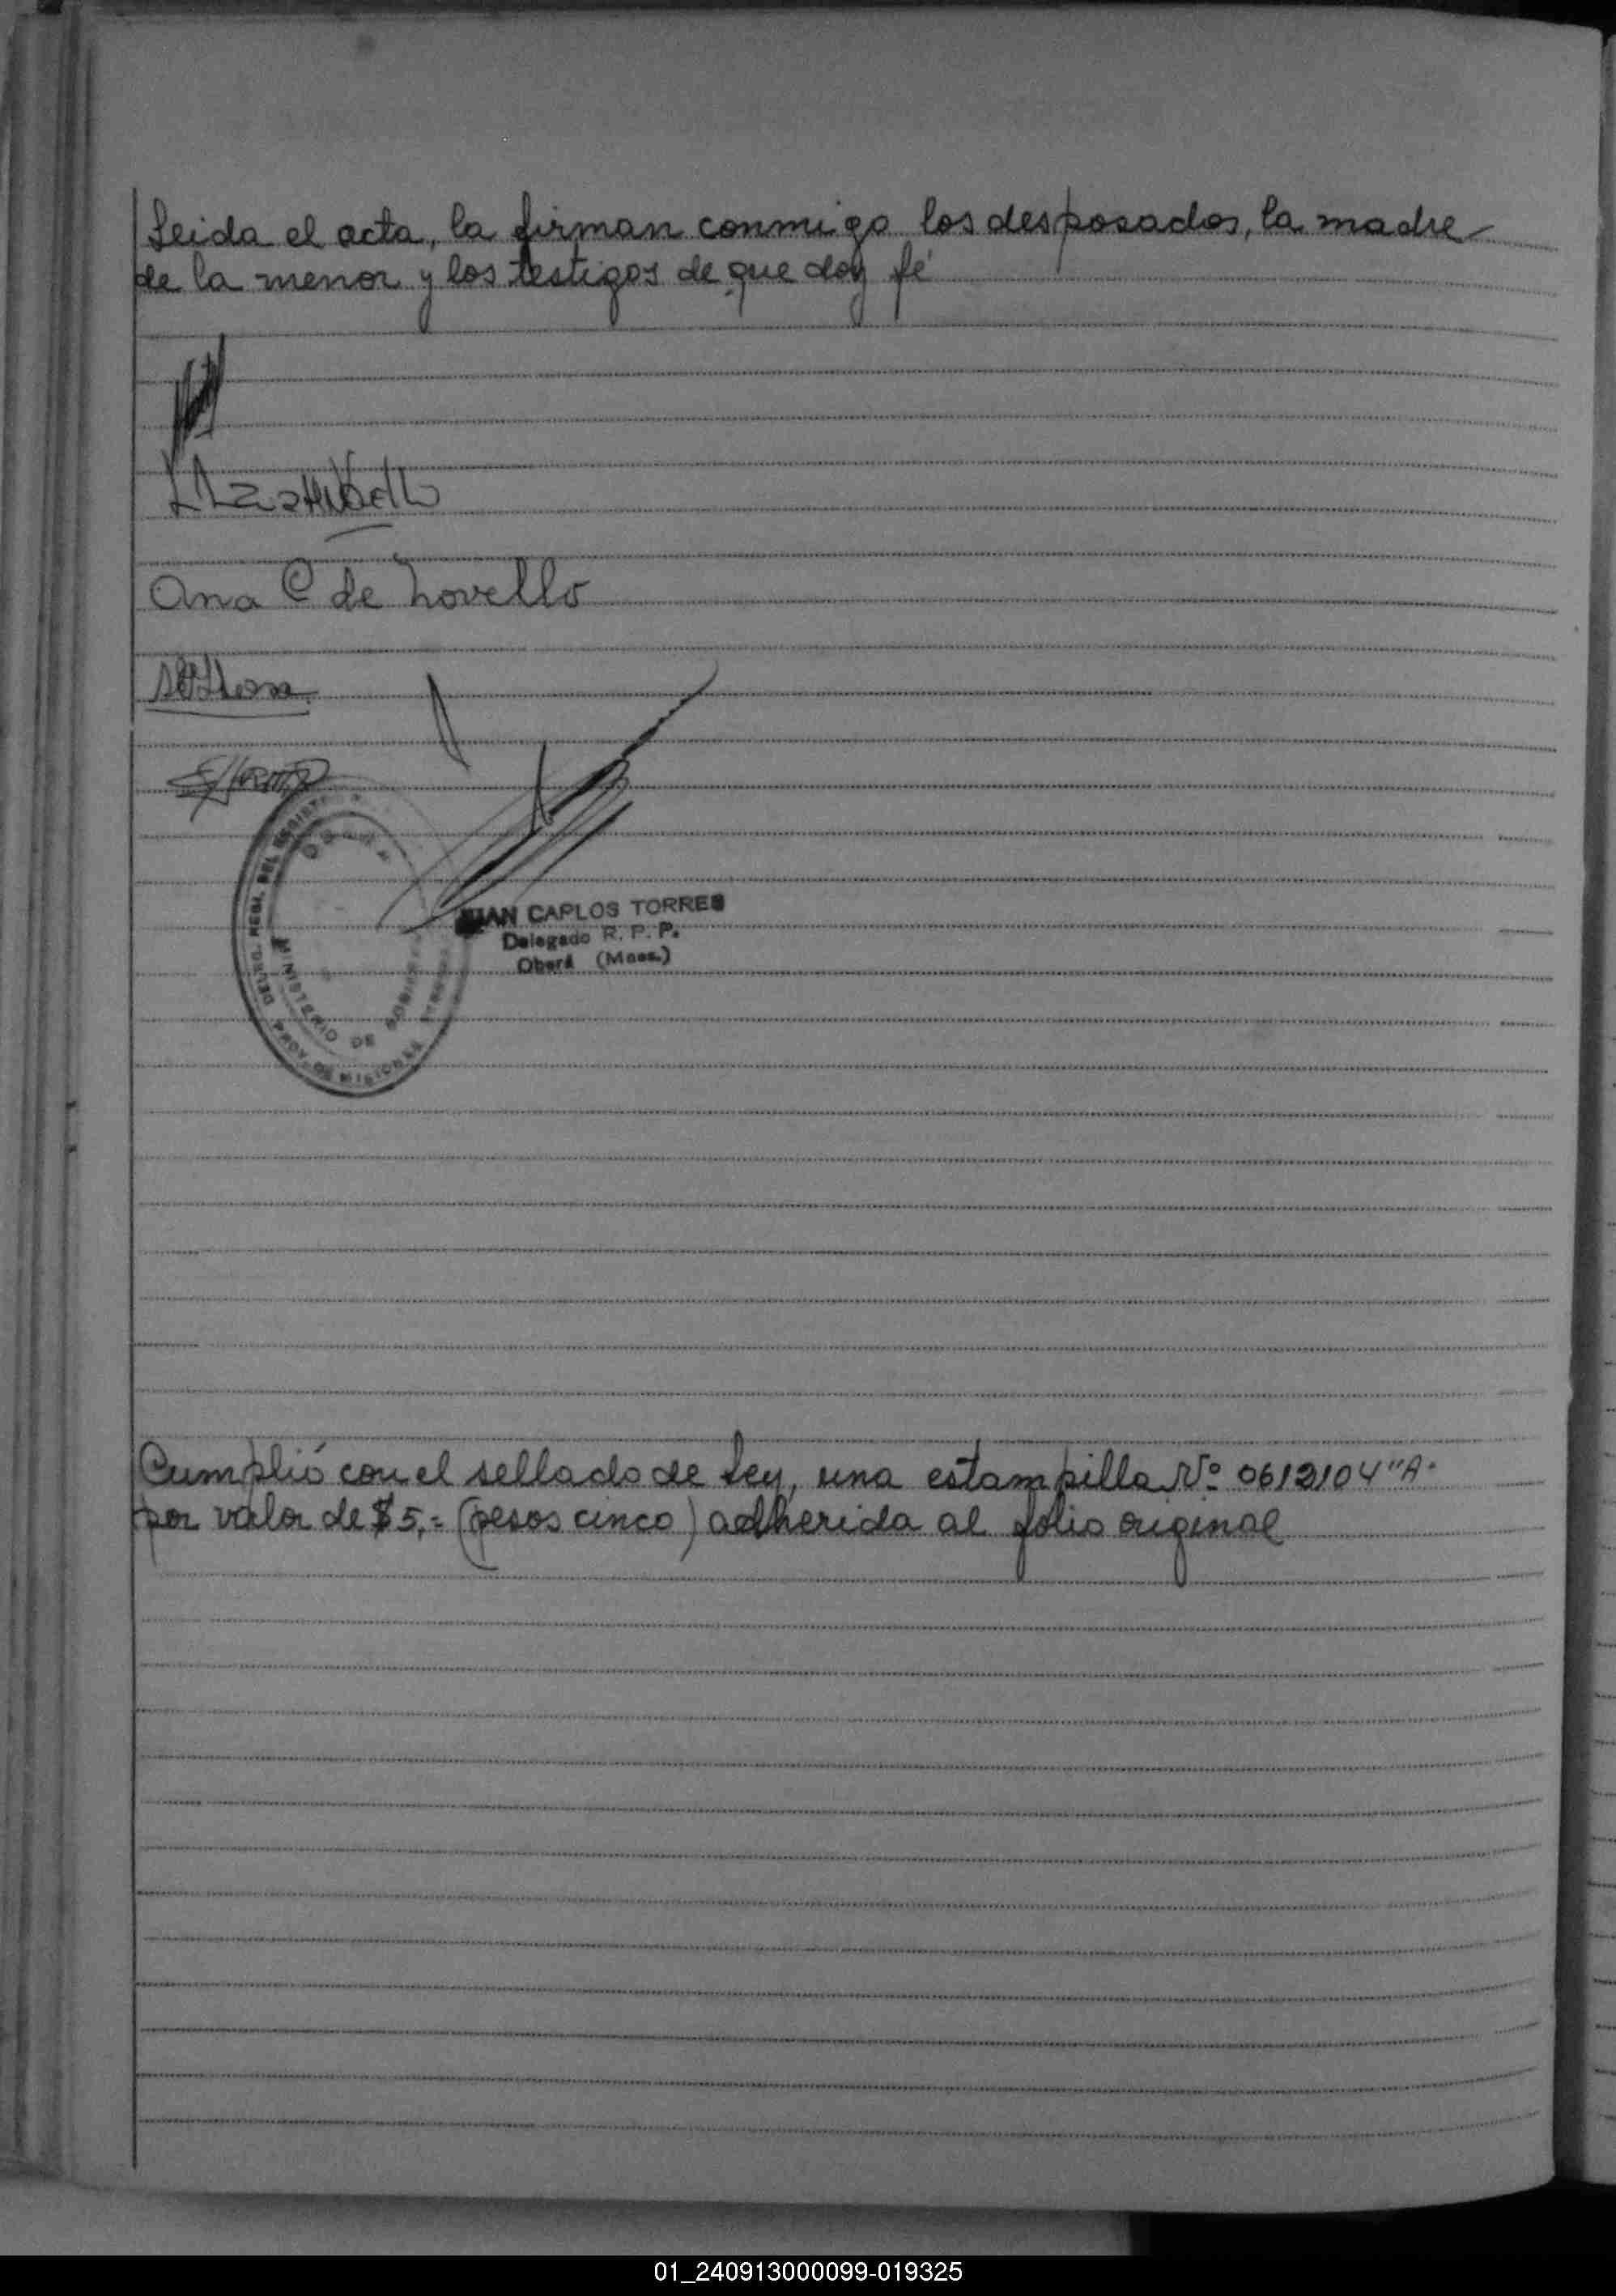 Leida el acta, la firman conmigo los desposados, la madre
de la menor y los testigos de que doy fé
Ana C de Novello
JUAN CARLOS TORRES
Delegado R. P. P.
Oberá (Mnes.)
DEL REGIST
MINISTERIO DE
PROV. DE MISIONES
Cumplió con el sellado de Ley, una estampilla Nº 0612104 "A"
por valor de $5,= (pesos cinco) adherida al folio original
01_240913000099-019325